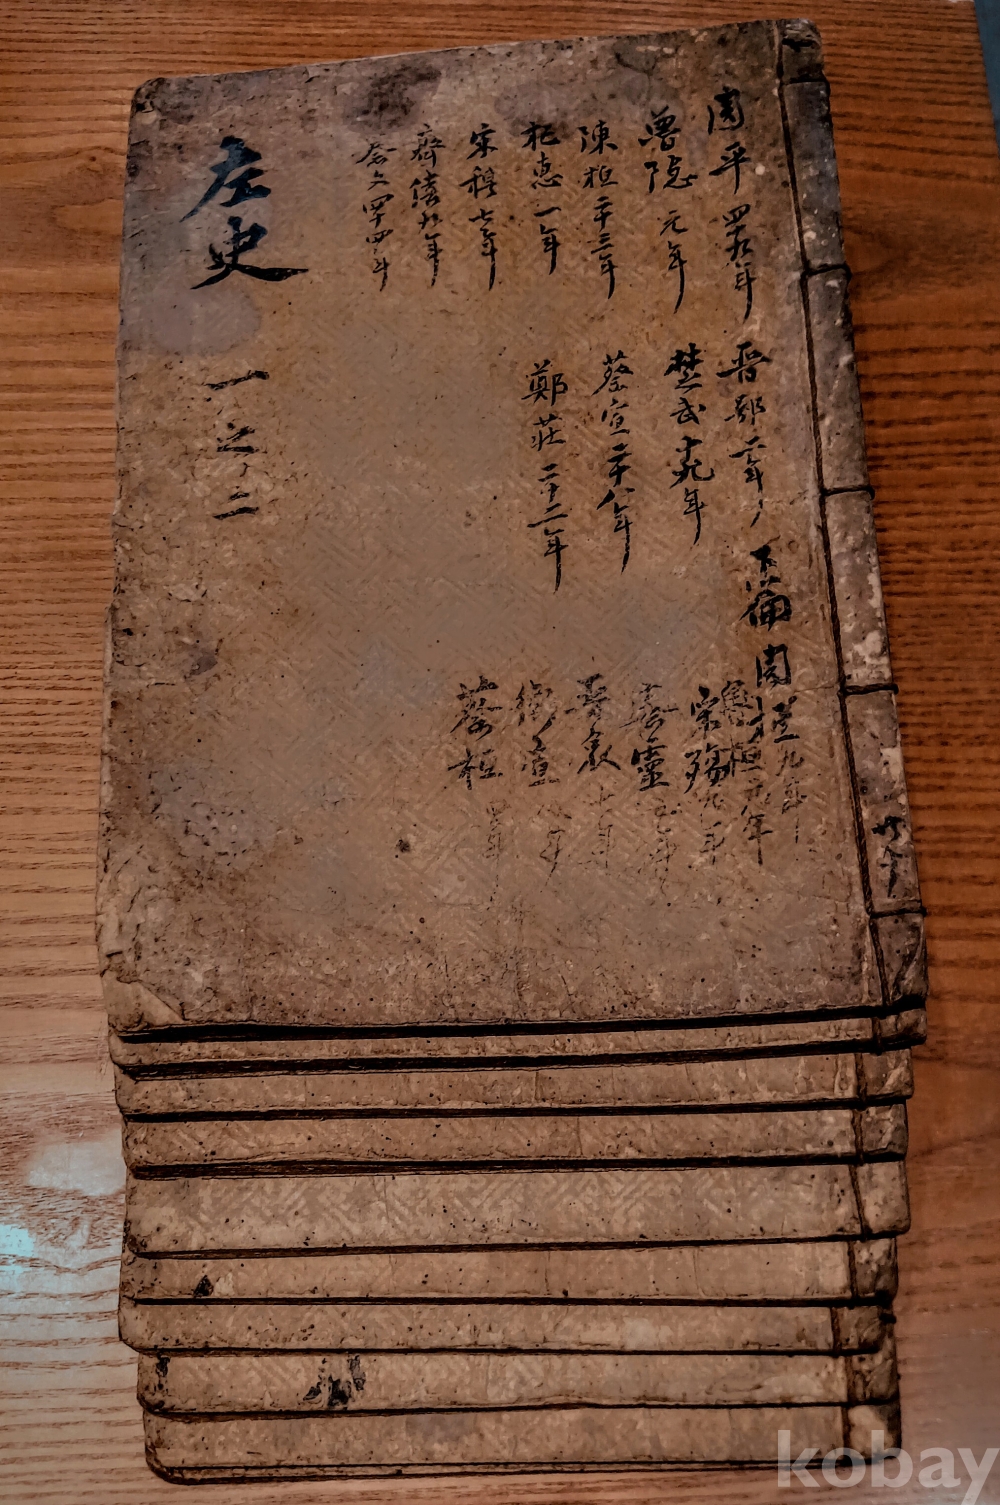 周平四十九年
魯隠元年
陳桓二十三年
杞惠一年
宋穆七年
齊僖九年
秦文四十四年
晋鄂二年
楚武十九年
蔡宣二十八年
鄭莊二十二年
周桓九年
魯桓元年
宋殤九年
秦靈
晋哀
衛宣
蔡桓
左史
一之二
kobay